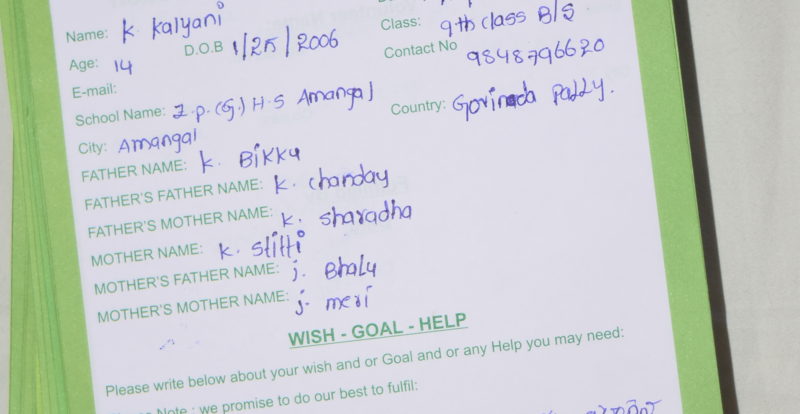 Name: K. Kalyani Class: 9th class B/S
Age: 14 D.O.B 1/25/2006 Contact No 9848796620
E-mail:
School Name: Z.P.(G.) H.S Amangal Country: Govinada Pally.
City: Amangal
FATHER NAME: K. Bikku
FATHER'S FATHER NAME: K. chanday
FATHER'S MOTHER NAME: K. sharadha
MOTHER NAME: K. stitti
MOTHER'S FATHER NAME: J. Bhalu
MOTHER'S MOTHER NAME: J. meri
WISH - GOAL - HELP
Please write below about your wish and or Goal and or any Help you may need:
Note : we promise to do our best to fulfil: